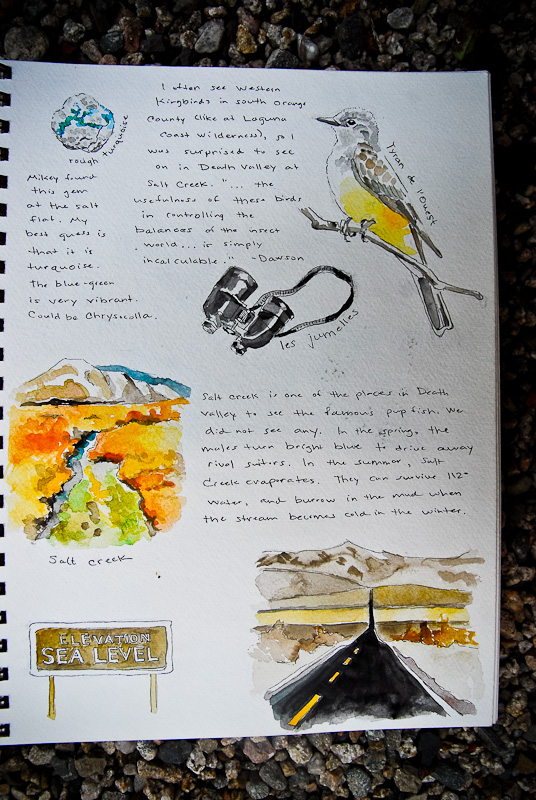 I often see Western
Kingbirds in south Orange
County (like at Laguna
Coast Wilderness), so I
was surprised to see
on in Death Valley at
Salt Creek. "... the
usefulness of these birds
in controlling the
balances of the insect
world... is simply
incalculable." -Dawson
rough turquoise
Mikey found
this gem
at the salt
flat. My
best guess is
that it is
turquoise.
The blue-green
is very vibrant.
Could be Chrysocolla.
Tyran de l'Ouest
les jumelles
Salt Creek is one of the places in Death
Valley to see the famous pupfish. We
did not see any. In the spring, the
males turn bright blue to drive away
rival suitors. In the summer, Salt
Creek evaporates. They can survive 112°
water, and burrow in the mud when
the stream becomes cold in the winter.
Salt creek
ELEVATION
SEA LEVEL